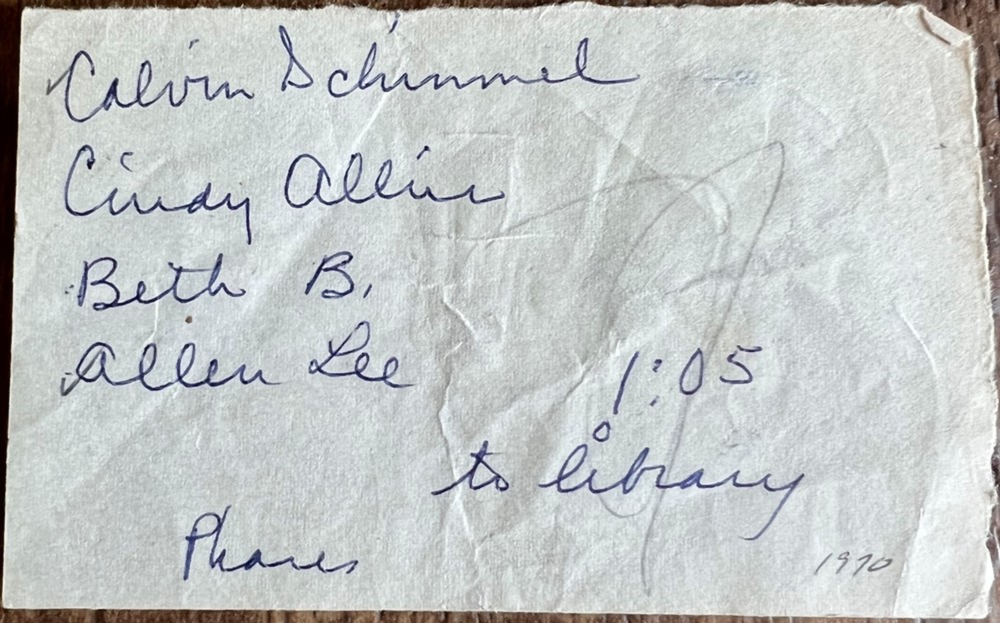 Calvin Schimmel
Cindy Allin
Beth B.
Allen Lee
1:05
to library
Phares
1970